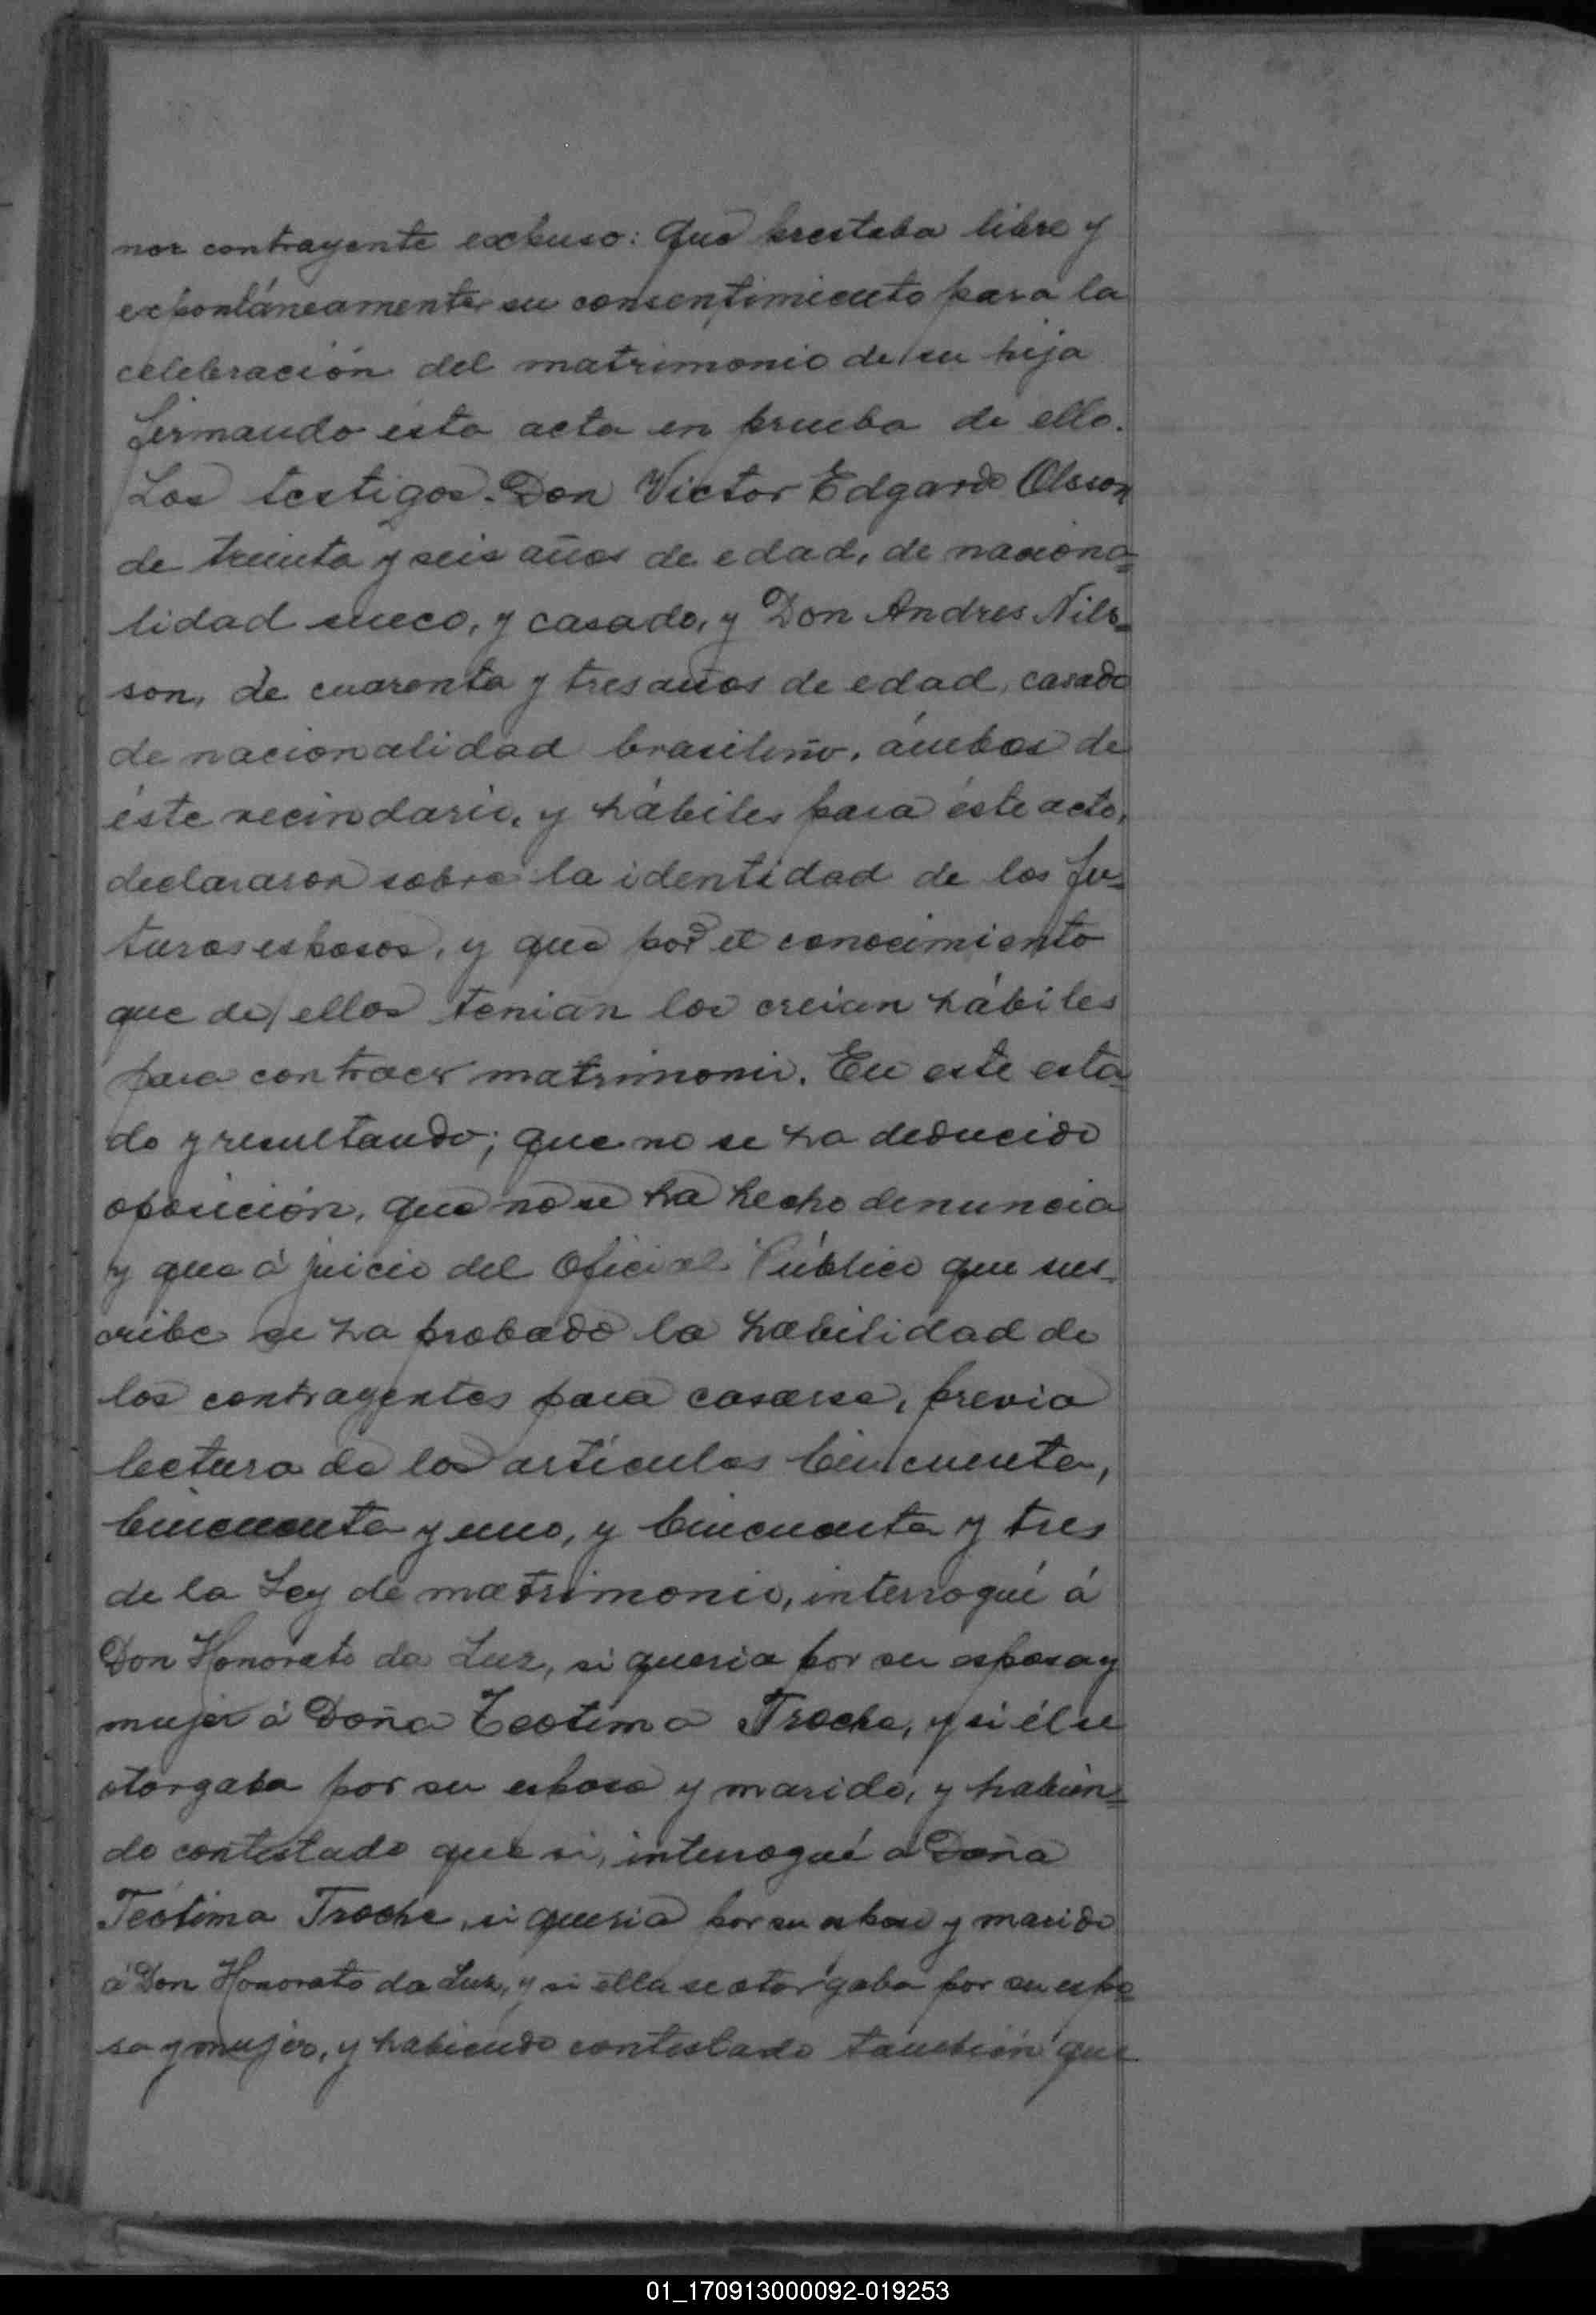 nor contrayente expuso: que prestaba libre y
expontáneamente su consentimiento para la
celebración del matrimonio de su hija
firmando ésta acta en prueba de ello.
Los testigos. Don Victor Edgardo Olsson
de treinta y seis años de edad, de naciona=
lidad sueco, y casado, y Don Andres Nils=
son, de cuarenta y tres años de edad, casado
de nacionalidad brasileño, ámbos de
éste vecindario, y hábiles para éste acto,
declararon sobre la identidad de los fu=
turos esposos, y que por el conocimiento
que de ellos tenian los creian hábiles
para contraer matrimonio. En este esta=
do y resultando; que no se ha deducido
oposición, que no se ha hecho denuncia
y que á juicio del Oficial Público que sus=
cribe se ha probado la habilidad de
los contrayentes para casarse, previa
lectura de los artículos Cincuenta,
Cincuenta y uno, y Cincuenta y tres
de la Ley de matrimonio, interrogué á
Don Honorato da Luz, si queria por su esposa y
mujer á Doña Teotima Troche, y si él se
otorgaba por su esposo y marido, y habien=
do contestado que si, interrogué a Doña
Teótima Troche, si queria por su esposo y marido
á Don Honorato da Luz, y si ella se otorgaba por su espo=
sa y mujer, y habiendo contestado también que
01_170913000092-019253